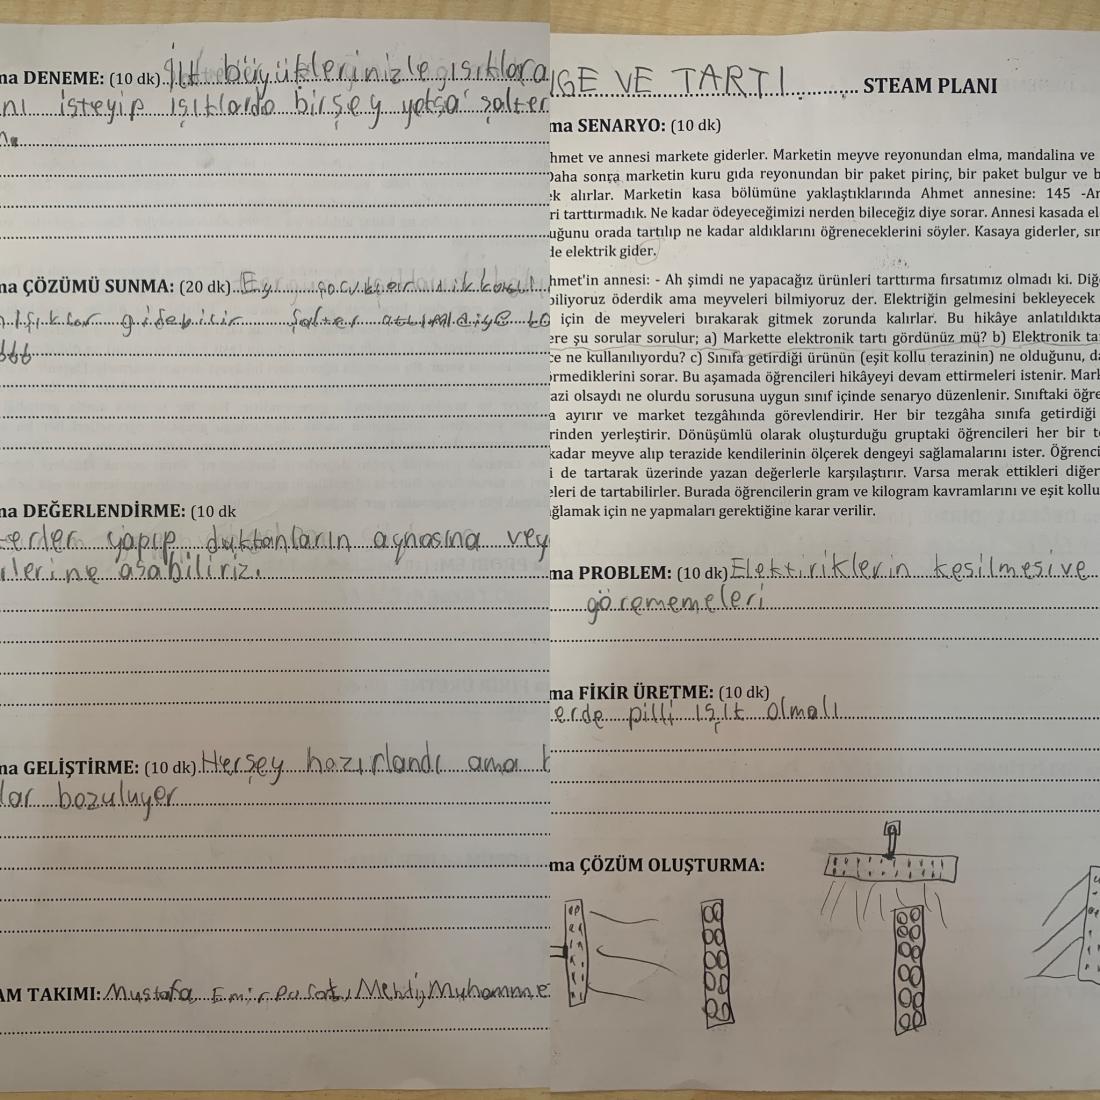 na DENEME: (10 dk) ilk büyüklerinizle ışıklara
nı isteyip ışıklarda birşey yoksa şalter
na ÇÖZÜMÜ SUNMA: (20 dk)
ışıklar gidebilir şalter
na DEĞERLENDİRME: (10 dk
yapıp dükkanların aynasına vey
asabiliriz.
na GELİŞTİRME: (10 dk) Herşey hazırlandı ama b
lar bozuluyer
AM TAKIMI: Mustafa Emir Mehdi, Muhamme
İGE VE TARTI STEAM PLANI
ma SENARYO: (10 dk)
hmet ve annesi markete giderler. Marketin meyve reyonundan elma, mandalina ve
Daha sonra marketin kuru gıda reyonundan bir paket pirinç, bir paket bulgur ve b
ek alırlar. Marketin kasa bölümüne yaklaştıklarında Ahmet annesine: 145 -An
ri tarttırmadık. Ne kadar ödeyeceğimizi nerden bileceğiz diye sorar. Annesi kasada el
uğunu orada tartılıp ne kadar aldıklarını öğreneceklerini söyler. Kasaya giderler, sır
de elektrik gider.
hmet'in annesi: - Ah şimdi ne yapacağız ürünleri tarttırma fırsatımız olmadı ki. Diğe
biliyoruz öderdik ama meyveleri bilmiyoruz der. Elektriğin gelmesini bekleyecek
için de meyveleri bırakarak gitmek zorunda kalırlar. Bu hikâye anlatıldıkta
ere şu sorular sorulur; a) Markette elektronik tartı gördünüz mü? b) Elektronik ta
ce ne kullanılıyordu? c) Sınıfa getirdiği ürünün (eşit kollu terazinin) ne olduğunu, da
rmediklerini sorar. Bu aşamada öğrencileri hikâyeyi devam ettirmeleri istenir. Mark
azi olsaydı ne olurdu sorusuna uygun sınıf içinde senaryo düzenlenir. Sınıftaki öğre
a ayırır ve market tezgâhında görevlendirir. Her bir tezgâha sınıfa getirdiği
rinden yerleştirir. Dönüşümlü olarak oluşturduğu gruptaki öğrencileri her bir te
kadar meyve alıp terazide kendilerinin ölçerek dengeyi sağlamalarını ister. Öğrenci
i de tartarak üzerinde yazan değerlerle karşılaştırır. Varsa merak ettikleri diğer
eleri de tartabilirler. Burada öğrencilerin gram ve kilogram kavramlarını ve eşit kollu
ğlamak için ne yapmaları gerektiğine karar verilir.
ma PROBLEM: (10 dk) Elektiriklerin kesilmesi ve
görememeleri
ma FİKİR ÜRETME: (10 dk)
erde pilli ışık olmalı
ma ÇÖZÜM OLUŞTURMA: